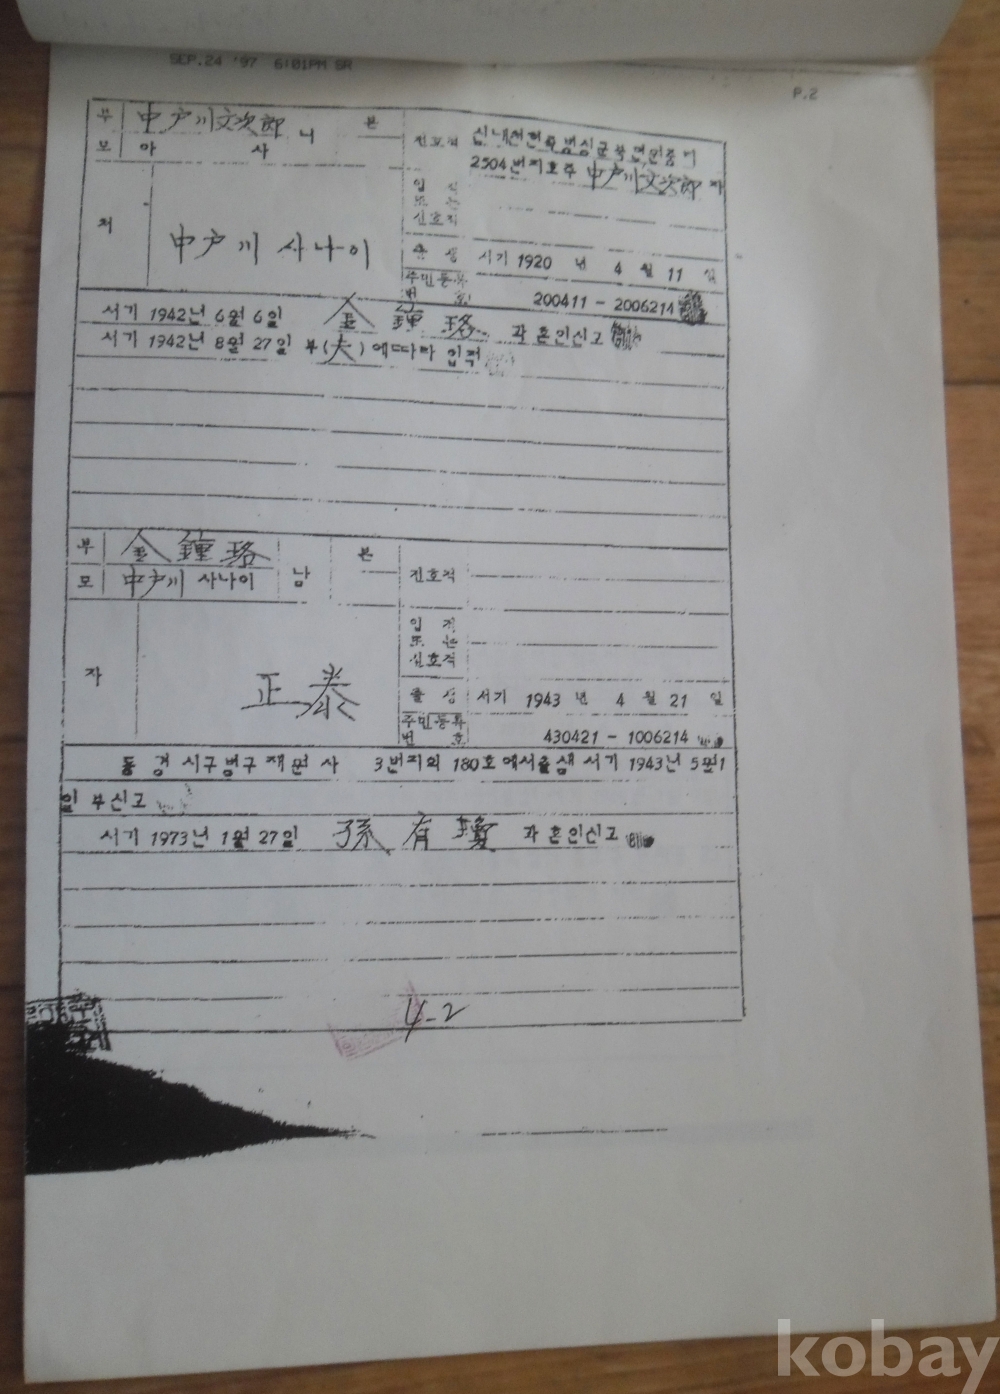 SEP.24 '97 6:01PM SR
P.2
부 中戸川文次郎 니 본
모 아 사
전호적
2504번지호주 中戸川文次郎 자
처
中戸川 사나이
입 적
또 는
신호적
출 생 서기 1920 년 4 월 11 일
주민등록
번 호 200411 - 2006214
서기 1942년 6월 6일 金鍾珞 과 혼인신고
서기 1942년 8월 27일 부(夫)에따라 입적
부 金鍾珞 남 본
모 中戸川 사나이
전호적
자
正泰
입 적
또 는
신호적
출 생 서기 1943 년 4 월 21 일
주민등록
번 호 430421 - 1006214
동경시구병구재원사 3번지의 180호에서출생 서기 1943년 5월1
일 부신고
서기 1973년 1월 27일 孫有瓊 과 혼인신고
4-2
kobay